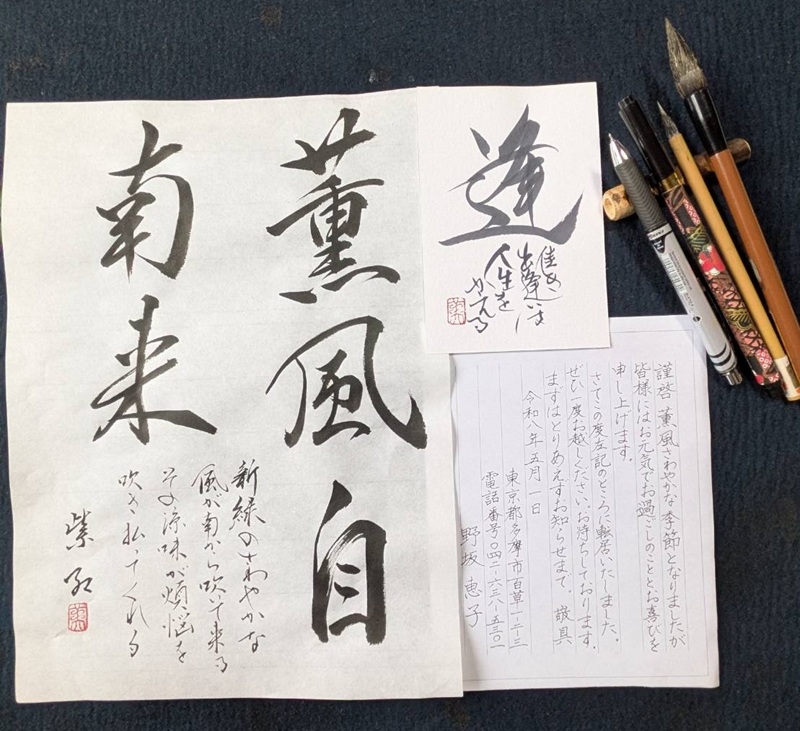 薫風自
南来
新緑のさわやかな
風が南から吹いて来る
その涼味が煩悩を
吹き払ってくれる
紫
逢
佳き
出逢いは
人生を
かえる
謹啓 薫風さわやかな季節となりましたが
皆様にはお元気でお過ごしのこととお喜びを
申し上げます。
さてこの度左記のところに転居いたしました。
ぜひ一度お越しください。お待ちしております。
まずはとりあえずお知らせまで。 敬具
令和八年五月一日
東京都多摩市百草一-二-三
電話番号〇四二-六三八-五三〇一
野坂 恵子